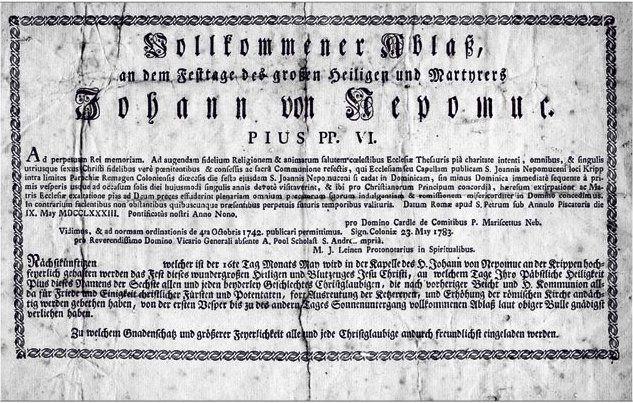 Vollkommener Ablaß,
an dem Festtage des großen Heiligen und Martyrers
Johann von Nepomuc.
PIUS PP. VI.
Ad perpetuam Rei memoriam. Ad augendam fidelium Religionem & animarum salutem cœlestibus Ecclesiæ Thesauris pia charitate intenti, omnibus, & singulis
utriusque sexus Christi fidelibus verè pœnitentibus & confessis ac sacra Communione refectis, qui Ecclesiam seu Capellam publicam S. Joannis Nepomuceni loci Kripp
intra limites Parochiæ Remagen Coloniensis diœcesis die festo ejusdem S. Joannis Nepomuceni si cadat in Dominicam, sin minus Dominica immediatè sequente a pri-
mis vesperis usque ad occasum solis diei hujusmodi singulis annis devotè visitaverint, & ibi pro Christianorum Principum concordia, hæresum extirpatione ac Ma-
tris Ecclesiæ exaltatione pias ad Deum preces effuderint plenariam omnium peccatorum suorum indulgentiam, & remissionem misericorditer in Domino concedimus.
In contrarium facientibus non obstantibus quibuscunque præsentibus perpetuis futuris temporibus valituris. Datum Romæ apud S. Petrum sub Annulo Piscatoris die
IX. May MDCCLXXXIII. Pontificatûs nostri Anno Nono.
pro Domino Cardle de Comitibus P. Mariscotus Neb.
Vidimus, & ad normam ordinationis de 4ta Octobris 1742. publicari permittimus. Sign. Coloniæ 23. May 1783.
pro Reverendissimo Domino Vicario Generali absente A. Pool Scholast S. Andr. mprià.
M. J. Leinen Protonotarius in Spiritualibus.
Nächstkünftigen welcher ist der 16te Tag Monats May wird in der Kapelle des H. Johann von Nepomuc an der Krippen hoch-
feyerlich gehalten werden das Fest dieses wundergroßen Heiligen und Blutzeuges Jesu Christi, an welchem Tage Ihro Päbstliche Heiligkeit
Pius dieses Namens der Sechste allen und jeden beyderley Geschlechts Christglaubigen, die nach vorheriger Beicht und H. Kommunion all-
da für Friede und Einigkeit christlicher Fürsten und Potentaten, fort Ausreutung der Ketzereyen, und Erhöhung der römischen Kirche andäch-
tig werden gebethen haben, von der ersten Vesper bis zu des andern Tages Sonnenuntergang vollkommenen Ablaß laut obiger Bulle gnädigst
verliehen haben.
Zu welchem Gnadenschatz und größerer Feyerlichkeit alle und jede Christglaubige andurch freundlichst eingeladen werden.